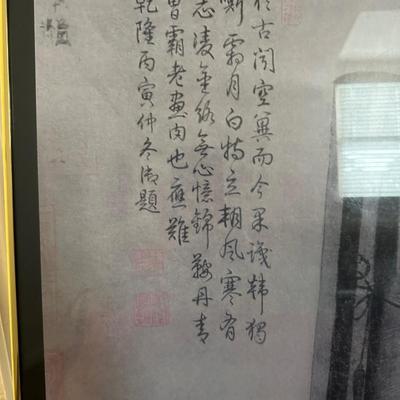 古聞空冀而今果識韓獨
嘶霜月白特立朔風寒有
志凌金絡無心憶錦鞍丹青
曹霸老畫肉也應難
乾隆丙寅仲冬御題